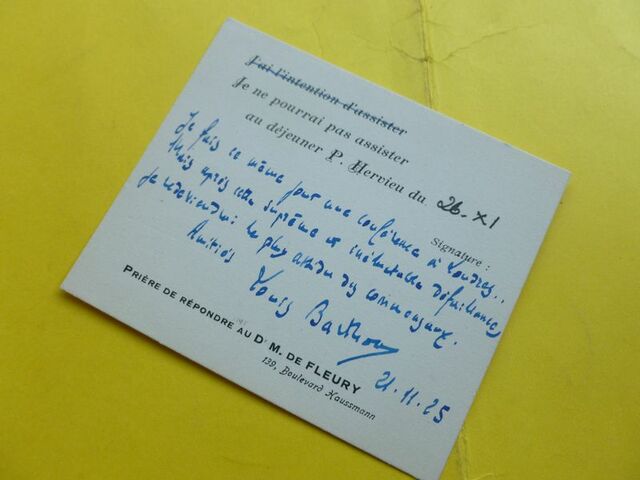 J'ai l'intention d'assister
Je ne pourrai pas assister
au déjeuner P. Hervieu du 26-XI
Signature :
Je fais ce même jour une conférence à Londres..
Mais après cette suprême et inéluctable défaillance,
je redeviendrai le plus assidu des commensaux.
Amitiés
Louis Barthou
21.11.25
PRIÈRE DE RÉPONDRE AU Dr M. DE FLEURY
139, Boulevard Haussmann